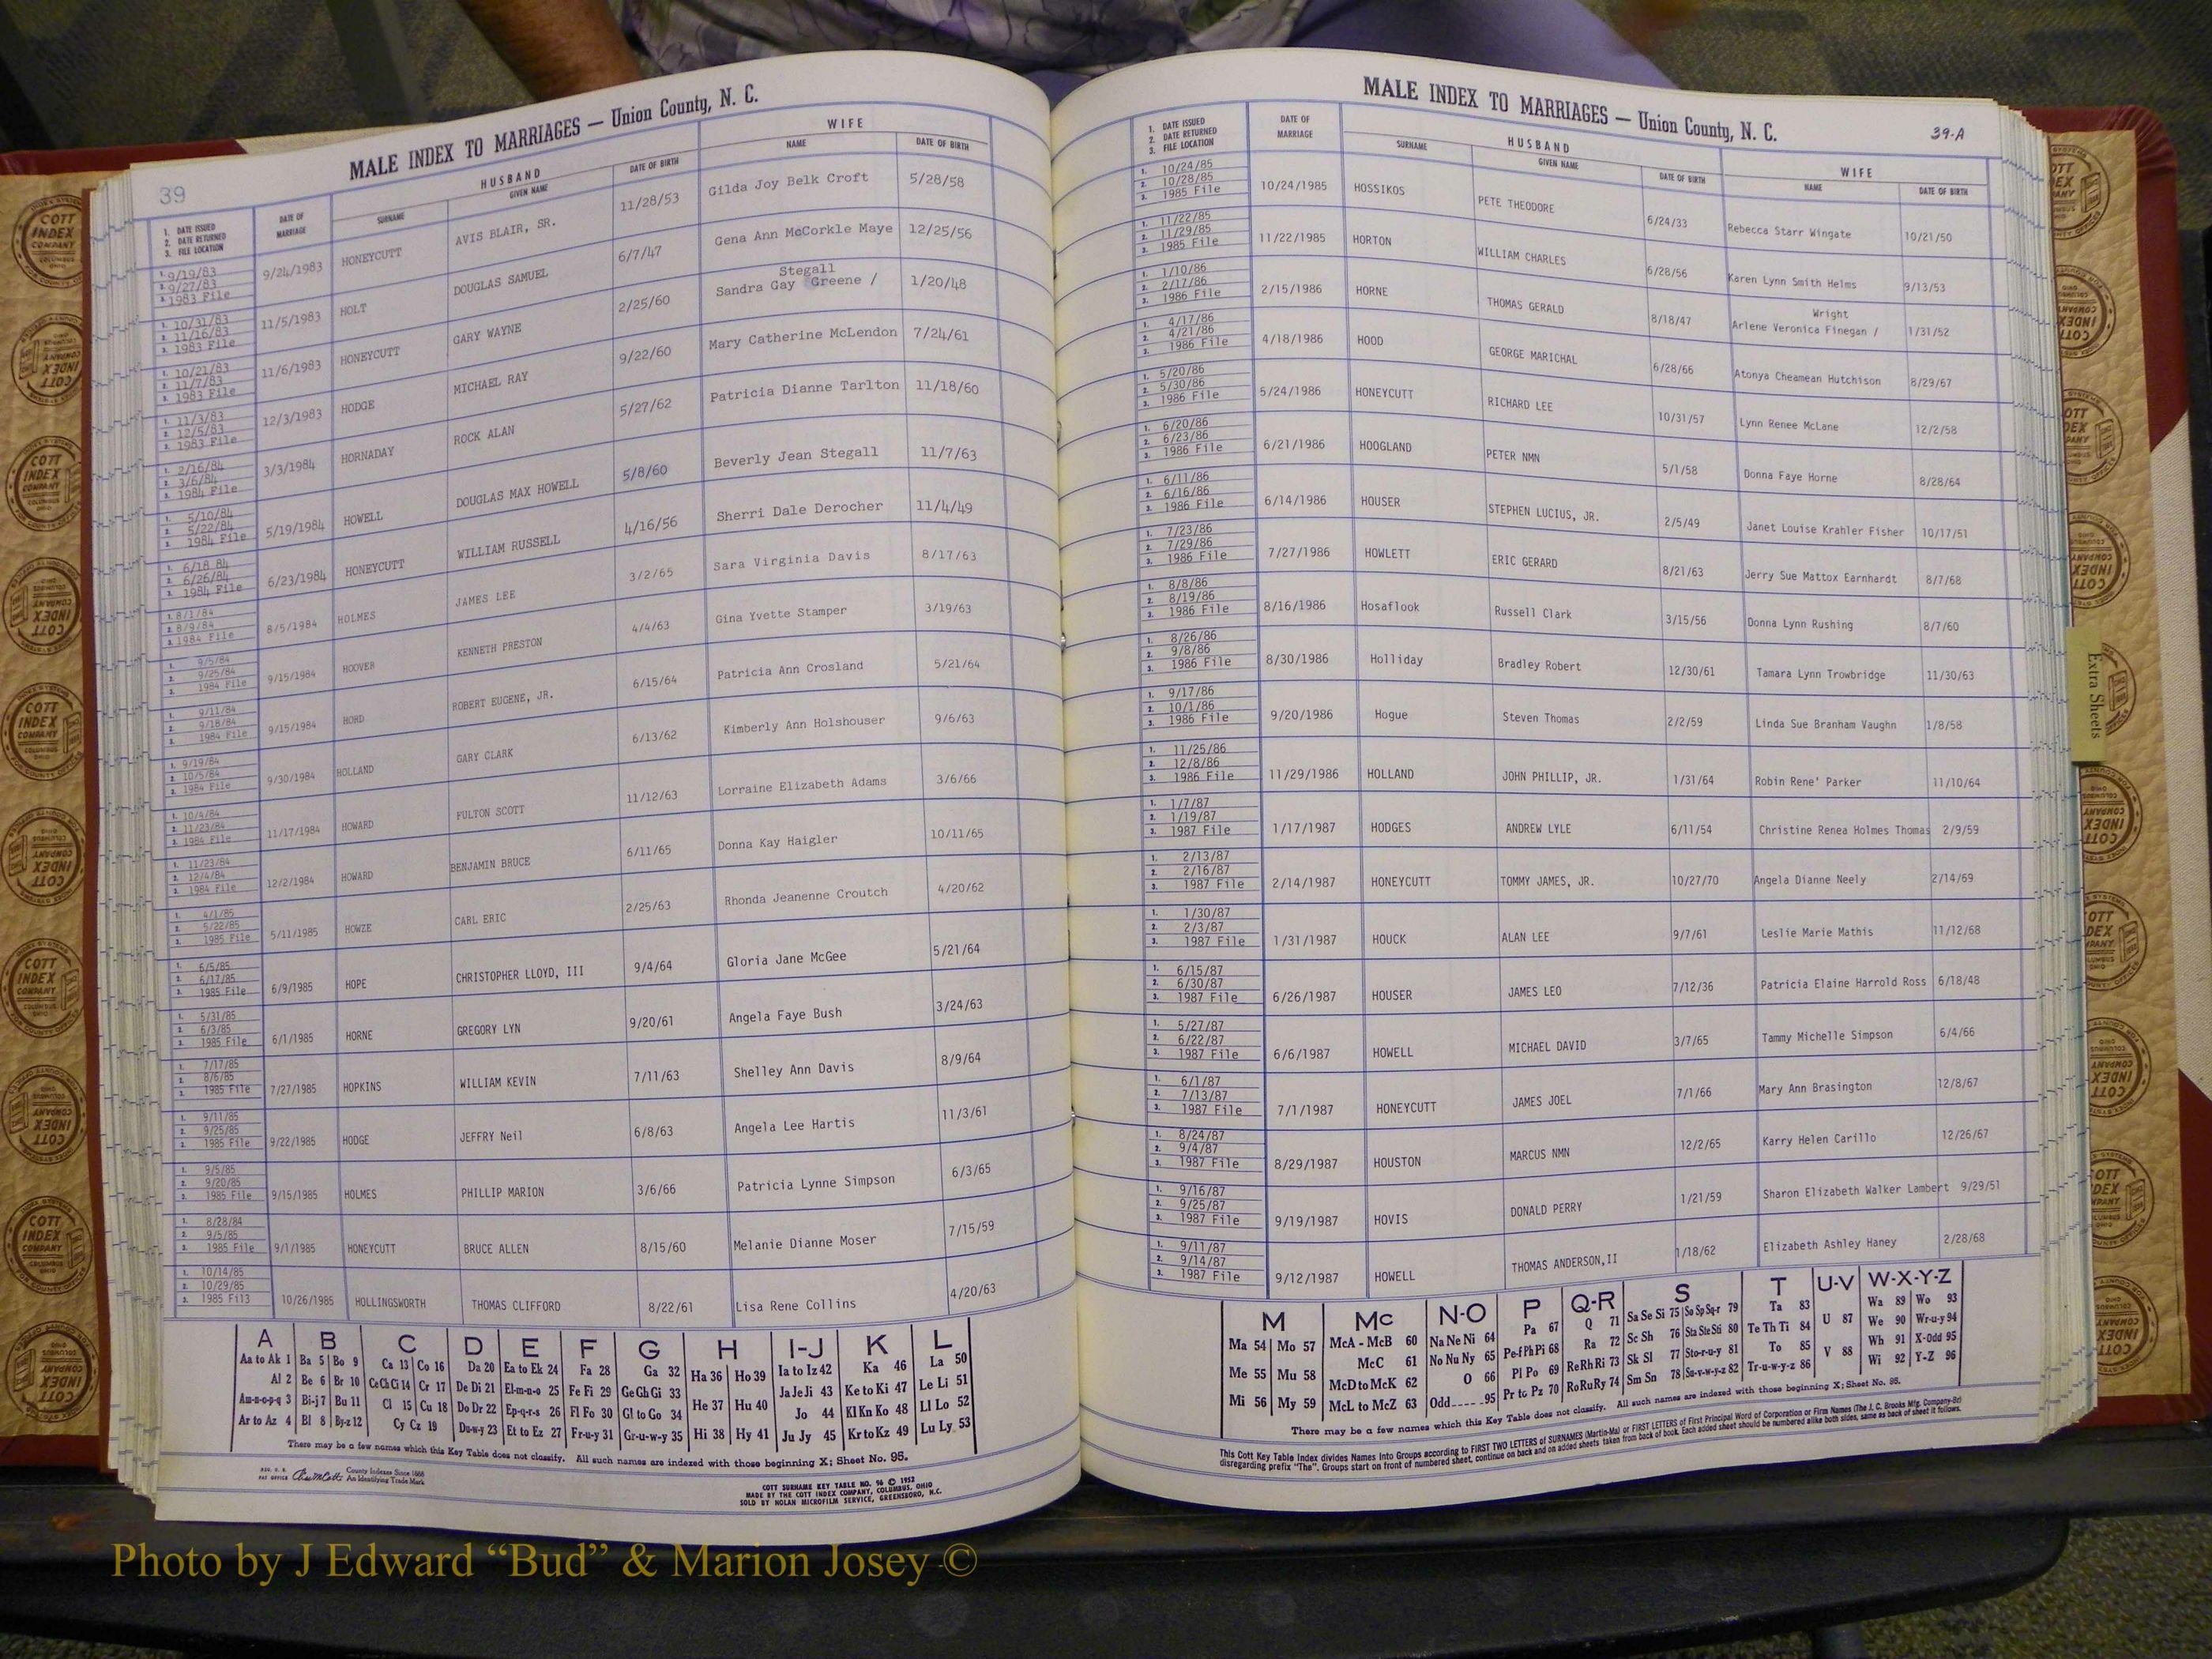 MALE INDEX TO MARRIAGES — Union County, N. C.
39
1. DATE ISSUED
2. DATE RETURNED
3. FILE LOCATION
DATE OF MARRIAGE
HUSBAND
SURNAME GIVEN NAME DATE OF BIRTH
WIFE
NAME DATE OF BIRTH
1. 9/19/83
2. 9/27/83
3. 1983 File
9/24/1983 HONEYCUTT AVIS BLAIR, SR. 11/28/53 Gilda Joy Belk Croft 5/28/58
1. 10/31/83
2. 11/16/83
3. 1983 File
11/5/1983 HOLT DOUGLAS SAMUEL 6/7/47 Gena Ann McCorkle Maye 12/25/56
1. 10/21/83
2. 11/7/83
3. 1983 File
Stegall
11/6/1983 HONEYCUTT GARY WAYNE 2/25/60 Sandra Gay Greene / 1/20/48
1. 11/3/83
2. 12/5/83
3. 1983 File
12/3/1983 HODGE MICHAEL RAY 9/22/60 Mary Catherine McLendon 7/24/61
1. 2/16/84
2. 3/6/84
3. 1984 File
3/3/1984 HORNADAY ROCK ALAN 5/27/62 Patricia Dianne Tarlton 11/18/60
1. 5/10/84
2. 5/22/84
3. 1984 File
5/19/1984 HOWELL DOUGLAS MAX HOWELL 5/8/60 Beverly Jean Stegall 11/7/63
1. 6/18 84
2. 6/26/84
3. 1984 File
6/23/1984 HONEYCUTT WILLIAM RUSSELL 4/16/56 Sherri Dale Derocher 11/4/49
1. 8/1/84
2. 8/9/84
3. 1984 File
8/5/1984 HOLMES JAMES LEE 3/2/65 Sara Virginia Davis 8/17/63
1. 9/5/84
2. 9/25/84
3. 1984 File
9/15/1984 HOOVER KENNETH PRESTON 4/4/63 Gina Yvette Stamper 3/19/63
1. 9/11/84
2. 9/18/84
3. 1984 File
9/15/1984 HORD ROBERT EUGENE, JR. 6/15/64 Patricia Ann Crosland 5/21/64
1. 9/19/84
2. 10/5/84
3. 1984 File
9/30/1984 HOLLAND GARY CLARK 6/13/62 Kimberly Ann Holshouser 9/6/63
1. 10/4/84
2. 11/23/84
3. 1984 File
11/17/1984 HOWARD FULTON SCOTT 11/12/63 Lorraine Elizabeth Adams 3/6/66
1. 11/23/84
2. 12/4/84
3. 1984 File
12/2/1984 HOWARD BENJAMIN BRUCE 6/11/65 Donna Kay Haigler 10/11/65
1. 4/1/85
2. 5/22/85
3. 1985 File
5/11/1985 HOWZE CARL ERIC 2/25/63 Rhonda Jeanenne Croutch 4/20/62
1. 6/5/85
2. 6/17/85
3. 1985 File
6/9/1985 HOPE CHRISTOPHER LLOYD, III 9/4/64 Gloria Jane McGee 5/21/64
1. 5/31/85
2. 6/3/85
3. 1985 File
6/1/1985 HORNE GREGORY LYN 9/20/61 Angela Faye Bush 3/24/63
1. 7/17/85
2. 8/6/85
3. 1985 File
7/27/1985 HOPKINS WILLIAM KEVIN 7/11/63 Shelley Ann Davis 8/9/64
1. 9/11/85
2. 9/25/85
3. 1985 File
9/22/1985 HODGE JEFFRY Neil 6/8/63 Angela Lee Hartis 11/3/61
1. 9/5/85
2. 9/20/85
3. 1985 File
9/15/1985 HOLMES PHILLIP MARION 3/6/66 Patricia Lynne Simpson 6/3/65
1. 8/28/84
2. 9/5/85
3. 1985 File
9/1/1985 HONEYCUTT BRUCE ALLEN 8/15/60 Melanie Dianne Moser 7/15/59
1. 10/14/85
2. 10/29/85
3. 1985 Fil3
10/26/1985 HOLLINGSWORTH THOMAS CLIFFORD 8/22/61 Lisa Rene Collins 4/20/63
A B C D E F G H I-J K L
Aa to Ak 1 Ba 5 Bo 9 Ca 13 Co 16 Da 20 Ea to Ek 24 Fa 28 Ga 32 Ha 36 Ho 39 Ia to Iz 42 Ka 46 La 50
Al 2 Be 6 Br 10 Ce Ch Ci 14 Cr 17 De Di 21 El-m-n-o 25 Fe Fi 29 Ge Gh Gi 33 He 37 Hu 40 Ja Je Ji 43 Ke to Ki 47 Le Li 51
Am-n-o-p-q 3 Bi-j 7 Bu 11 Cl 15 Cu 18 Do Dr 22 Ep-q-r-s 26 Fl Fo 30 Gl to Go 34 Hi 38 Hy 41 Jo 44 Kl Kn Ko 48 Ll Lo 52
Ar to Az 4 Bl 8 By-z 12 Cy Cz 19 Du-w-y 23 Et to Ez 27 Fr-u-y 31 Gr-u-w-y 35 Ju Jy 45 Kr to Kz 49 Lu Ly 53
There may be a few names which this Key Table does not classify. All such names are indexed with those beginning X; Sheet No. 95.
County Indexes Since 1888
An Identifying Trade Mark
COTT SURNAME KEY TABLE NO. 96 © 1952
MADE BY THE COTT INDEX COMPANY, COLUMBUS, OHIO
SOLD BY NOLAN MICROFILM SERVICE, GREENSBORO, N.C.
MALE INDEX TO MARRIAGES — Union County, N. C.
39-A
1. DATE ISSUED
2. DATE RETURNED
3. FILE LOCATION
DATE OF MARRIAGE
HUSBAND
SURNAME GIVEN NAME DATE OF BIRTH
WIFE
NAME DATE OF BIRTH
1. 10/24/85
2. 10/28/85
3. 1985 File
10/24/1985 HOSSIKOS PETE THEODORE 6/24/33 Rebecca Starr Wingate 10/21/50
1. 11/22/85
2. 11/29/85
3. 1985 File
11/22/1985 HORTON WILLIAM CHARLES 6/28/56 Karen Lynn Smith Helms 9/13/53
1. 1/10/86
2. 2/17/86
3. 1986 File
Wright
2/15/1986 HORNE THOMAS GERALD 8/18/47 Arlene Veronica Finegan / 1/31/52
1. 4/17/86
2. 4/21/86
3. 1986 File
4/18/1986 HOOD GEORGE MARICHAL 6/28/66 Atonya Cheamean Hutchison 8/29/67
1. 5/20/86
2. 5/30/86
3. 1986 File
5/24/1986 HONEYCUTT RICHARD LEE 10/31/57 Lynn Renee McLane 12/2/58
1. 6/20/86
2. 6/23/86
3. 1986 File
6/21/1986 HOOGLAND PETER NMN 5/1/58 Donna Faye Horne 8/28/64
1. 6/11/86
2. 6/16/86
3. 1986 File
6/14/1986 HOUSER STEPHEN LUCIUS, JR. 2/5/49 Janet Louise Krahler Fisher 10/17/51
1. 7/23/86
2. 7/29/86
3. 1986 File
7/27/1986 HOWLETT ERIC GERARD 8/21/63 Jerry Sue Mattox Earnhardt 8/7/68
1. 8/8/86
2. 8/19/86
3. 1986 File
8/16/1986 Hosaflook Russell Clark 3/15/56 Donna Lynn Rushing 8/7/60
1. 8/26/86
2. 9/8/86
3. 1986 File
8/30/1986 Holliday Bradley Robert 12/30/61 Tamara Lynn Trowbridge 11/30/63
1. 9/17/86
2. 10/1/86
3. 1986 File
9/20/1986 Hogue Steven Thomas 2/2/59 Linda Sue Branham Vaughn 1/8/58
1. 11/25/86
2. 12/8/86
3. 1986 File
11/29/1986 HOLLAND JOHN PHILLIP, JR. 1/31/64 Robin Rene' Parker 11/10/64
1. 1/7/87
2. 1/19/87
3. 1987 File
1/17/1987 HODGES ANDREW LYLE 6/11/54 Christine Renea Holmes Thomas 2/9/59
1. 2/13/87
2. 2/16/87
3. 1987 File
2/14/1987 HONEYCUTT TOMMY JAMES, JR. 10/27/70 Angela Dianne Neely 2/14/69
1. 1/30/87
2. 2/3/87
3. 1987 File
1/31/1987 HOUCK ALAN LEE 9/7/61 Leslie Marie Mathis 11/12/68
1. 6/15/87
2. 6/30/87
3. 1987 File
6/26/1987 HOUSER JAMES LEO 7/12/36 Patricia Elaine Harrold Ross 6/18/48
1. 5/27/87
2. 6/22/87
3. 1987 File
6/6/1987 HOWELL MICHAEL DAVID 3/7/65 Tammy Michelle Simpson 6/4/66
1. 6/1/87
2. 7/13/87
3. 1987 File
7/1/1987 HONEYCUTT JAMES JOEL 7/1/66 Mary Ann Brasington 12/8/67
1. 8/24/87
2. 9/4/87
3. 1987 File
8/29/1987 HOUSTON MARCUS NMN 12/2/65 Karry Helen Carillo 12/26/67
1. 9/16/87
2. 9/25/87
3. 1987 File
9/19/1987 HOVIS DONALD PERRY 1/21/59 Sharon Elizabeth Walker Lambert 9/29/51
1. 9/11/87
2. 9/14/87
3. 1987 File
9/12/1987 HOWELL THOMAS ANDERSON,II 1/18/62 Elizabeth Ashley Haney 2/28/68
M Mc N-O P Q-R S T U-V W-X-Y-Z
Ma 54 Mo 57 McA - McB 60 Na Ne Ni 64 Pa 67 Q 71 Sa Se Si 75 So Sp Sq-r 79 Ta 83 U 87 Wa 89 Wo 93
Me 55 Mu 58 McC 61 No Nu Ny 65 Pe-f Ph Pi 68 Ra 72 Sc Sh 76 Sta Ste Sti 80 Te Th Ti 84 V 88 We 90 Wr-u-y 94
Mi 56 My 59 McD to McK 62 O 66 Pl Po 69 Re Rh Ri 73 Sk Sl 77 Sto-r-u-y 81 To 85 Wh 91 X-Odd 95
McL to McZ 63 Odd-----95 Pr to Pz 70 Ro Ru Ry 74 Sm Sn 78 Su-v-w-y-z 82 Tr-u-w-y-z 86 Wi 92 Y-Z 96
There may be a few names which this Key Table does not classify. All such names are indexed with those beginning X; Sheet No. 95.
This Cott Key Table Index divides Names into Groups according to FIRST TWO LETTERS of SURNAMES (Martin-Ma) or FIRST LETTERS of First Principal Word of Corporation or Firm Names (The J. C. Brooks Mfg. Company-Br)
disregarding prefix "The". Groups start on front of numbered sheet, continue on back and on added sheets taken from back of book. Each added sheet should be numbered alike both sides, same as back of sheet it follows.
Extra Sheets
COTT
INDEX
COMPANY
Photo by J Edward “Bud” & Marion Josey ©